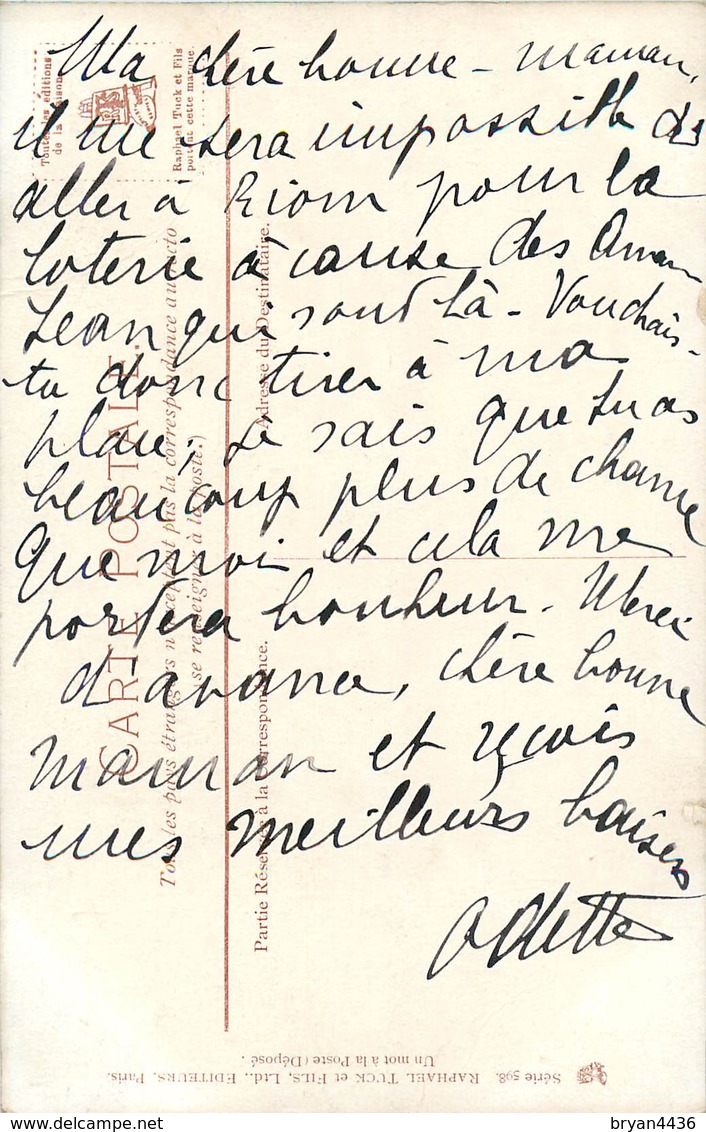 Ma chère bonne-maman,
il me sera impossible d'
aller à Riom pour la
loterie à cause des
Jean qui sont là - Voudrais-
tu donc tirer à ma
place; Je sais que tu as
beaucoup plus de chance
que moi et cela me
portera bonheur. Merci
d'avance, chère bonne
maman et reçois
mes meilleurs baisers
Odette
Toutes les éditions
de la maison
Raphael Tuck et Fils
portent cette marque
CARTE POSTALE.
Tous les pays étrangers n'acceptent pas la correspondance au recto
(se renseigner à la poste.)
Adresse du Destinataire.
Partie Réservée à la Correspondence.
Un mot à la Poste (Déposé).
Série 598. RAPHAEL TUCK et FILS, Ltd., EDITEURS, Paris.
bryan4436